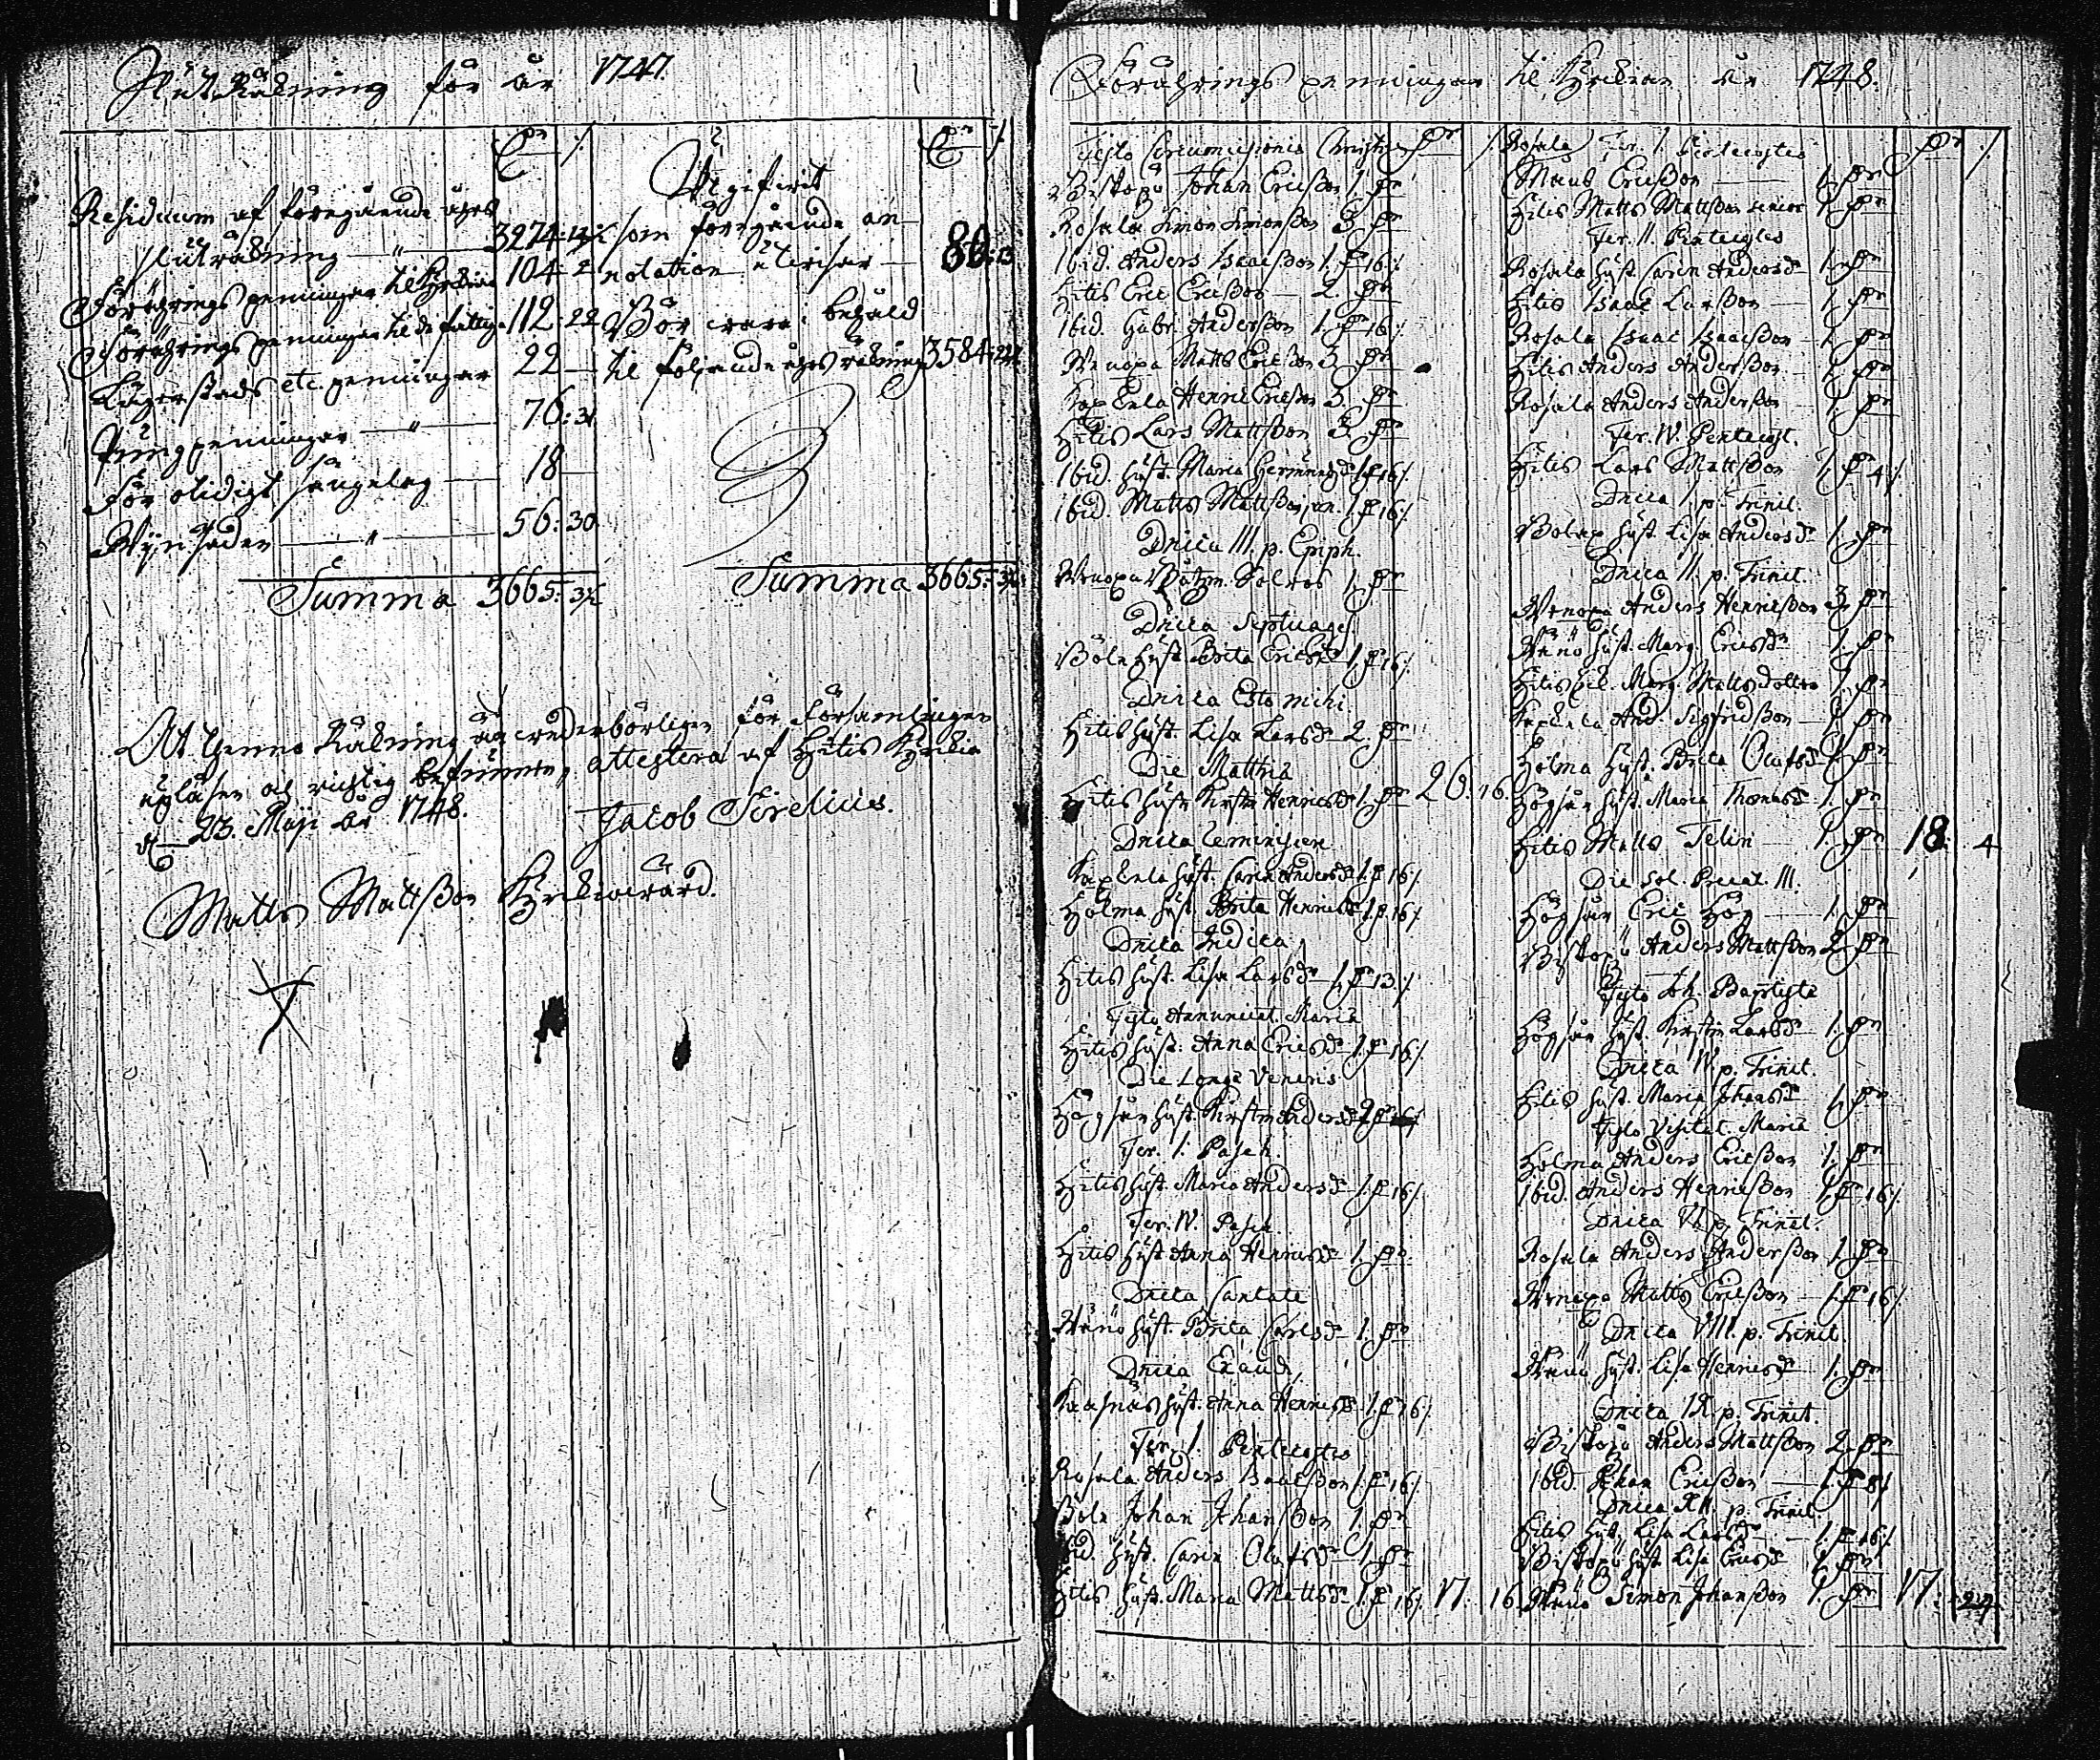 Slut Räkning för år 1747.
Residuum af föregående åhrs
sluträkning — " — 3274:12½
Förährings penningar til Kyrkian 104:2
Förährings penningar til de fattiga 112:22
Lägerstads etc penningar 22 —
Pungpenningar — " — 76:31
För otidigt sängelag — 18 —
Wijnsäden — " — 56:30
Summa 3665:3½
Utgifterit
som föregående an-
notation utwisar — 80:13
Bör wara i behåld
til följande åhrs räkning 3584:22½
Summa 3665:3½
At thenna Räkning är wederbörligen för Församlingen
upläsen och richtig befunnen, attesterar af Hitis Kyrkia
d. 23. Maji år 1748. Jacob Sirelius.
Matts Mattßon Kyrkiowärd.
Förährings penningar til Kyrkian år 1748.
Festo Circumcisionis Christi
Biskopö Johan Ericßon 1. Pr
Rosala Simon Simonßon 3. Pr
Ibid. Anders Isacßon 1. P 16 /.
Hitis Eric Ericßon — 2. Pr
Ibid. Gabr. Anderßon 1. P 16 /.
Wenoxa Matts Ericßon 3. Pr
Kax Enla Henric Ericßon 3. Pr
Hitis Lars Mattßon 3. Pr
Ibid. hust. Maria Hermansd 1 P 16 /.
Ibid. Matts Mattßon jun. 1 P 16 /.
Dnica III. p. Epiph.
Wenoxa Båtzm. Solros 1. Pr
Dnica Septuages.
Böle hust. Brita Ericsd 1. P 16 /.
Dnica Esto mihi.
Hitis hust. Lisa Larsd 2. Pr
Die Matthiæ
Hitis hust. Kirstin Henricsd 1. Pr 26. 16.
Dnica Reminiscere
Kax Enla hust. Carin Andersd 1. P 16 /.
Holma hust. Brita Henricsd 1 P 16 /.
Dnica Judica
Hitis hust. Lisa Larsd 1. P 13 /.
Festo Annunciat. Mariæ
Hitis hust. Anna Ericsd 1. P 16 /.
Die Longæ Veneris
Högsår hust. Kirstin Andersd 2 P
Fer. I. Pasch.
Hitis hust. Maria Andersd 1. P 16 /.
Fer. IV. Pasch.
Hitis hust. Anna Henricsd 1. Pr
Dnica Cantate
Wänö hust. Brita Carlsd 1. Pr
Dnica Exaudi
Kasnäs hust. Anna Henricsd 1. P 16 /.
Fer. I. Pentecostes
Rosala Anders Isacßon 1. P 16 /.
Böle Johan Johanßon 1. Pr
Ibid. hust. Carin Olofsd 1. Pr
Hitis hust. Maria Mattsd 1 P 16 /. 17. 16
Rosala Fer. I. Pentecostes
Måns Ericßon — 1. Pr
Hitis Matts Mattßon senior 1. Pr
Fer. II. Pentecostes
Rosala hust. Carin Andersd 1. Pr
Hitis Isaac Larßon — 1. Pr
Rosala Isaac Isaacßon — 1. Pr
Hitis Anders Anderßon 1. Pr
Rosala Anders Anderßon 1. Pr
Fer. IV. Pentecost.
Hitis Lars Mattßon 1. P 4 /.
Dnica I. p. Trinit.
Bolax hust. Lisa Andersd 1. Pr
Dnica II. p. Trinit.
Wenoxa Anders Henricßon 3. Pr
Wänö hust. Marg. Ericsd 1. Pr
Hitis Marg. Matts dotter 1. Pr
And. Sigfridßon — 1. Pr
Holma hust. Brita Olofsd 1. Pr
Högsår hust. Maria Thomasd 1. Pr
Hitis Matts Telin — 1. Pr 18. 4
Die Sol. Precat. III.
Högsår Eric Hög — 1. Pr
Biskopö Anders Mattßon 2. Pr
Festo Joh. Baptistæ
Högsår hust. Kirstin Larsd 1. Pr
Dnica IV. p. Trinit.
Hitis hust. Maria Johansd 1. Pr
Festo Visitat. Mariæ
Holma Anders Ericßon 1. Pr
Ibid. Anders Henricßon 1. P 16 /.
Dnica VI. p. Trinit.
Rosala Anders Anderßon 1. Pr
Wenoxa Matts Ericßon — 1. P 16 /.
Dnica VIII. p. Trinit.
Wänö hust. Lisa Henricsd 1. Pr
Dnica IX. p. Trinit.
Biskopö Anders Mattßon 2. Pr
Ibid. Johan Ericßon — 1. P 8 /.
Dnica XII. p. Trinit.
Hitis hust. Lisa Larsd — 1. P 16 /.
Biskopö hust. Lisa Ericsd 1. Pr
Wänö Simon Johanßon 1. Pr 17.